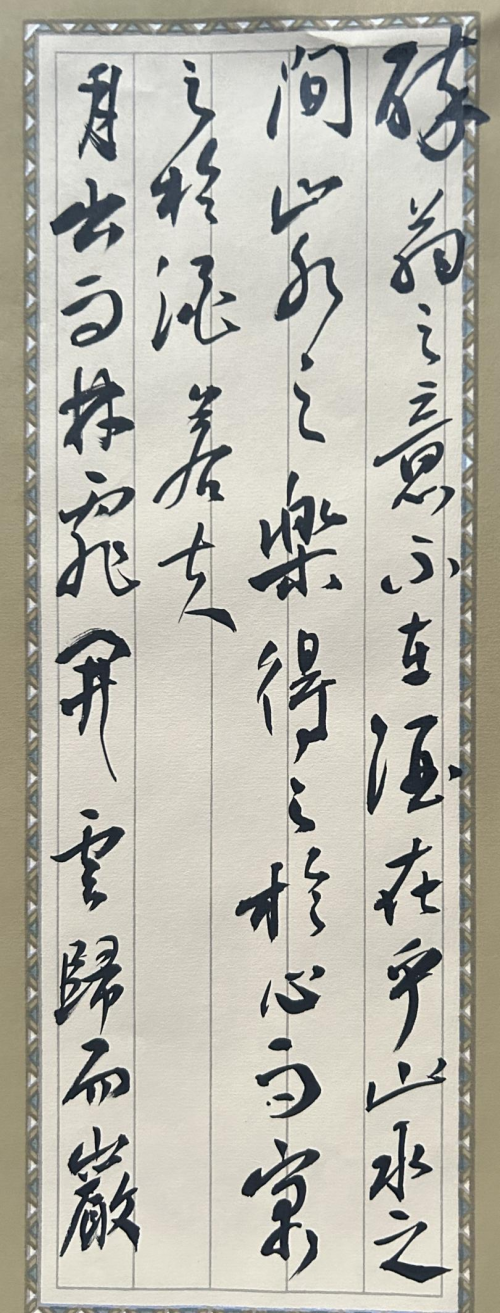 醉翁之意不在酒在乎山水之
間山水之樂得之於心而寓
之於酒若夫
月出而林霏開雲歸而巖